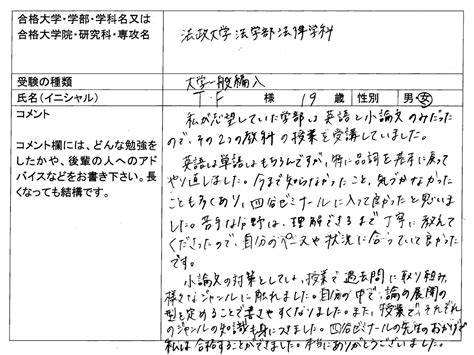 合格大学・学部・学科名又は
合格大学院・研究科・専攻名
法政大学 法学部 法律学科
受験の種類
大学一般編入
氏名(イニシャル)
T.F 様 19 歳 性別 男・女
コメント
コメント欄には、どんな勉強を
したかや、後輩の人へのアド
バイスなどをお書き下さい。長
くなっても結構です。
私が志望していた学部は英語と小論文のみだった
ので、その2つの教科の授業を受講していました。
英語は単語はもちろんですが、特に品詞を基本に戻って
やり直しました。今まで知らなかったこと、気づかなかった
ことも多くあり、四谷ゼミナールに入って良かったと思いい
ました。苦手な分野は、理解できるまで丁寧に教えて
くださったので、自分のペースや状況に合っていて良かった
です。
小論文の対策としては、授業で過去問に取り組み、
様々なジャンルに触れました。自分の中で、論の展開の
型を定めることで書きやすくなりました。また、授業で、それぞれ
のジャンルの知識も身につきました。四谷ゼミナールの先生のおかげで
私は合格することができました。本当にありがとうございました。